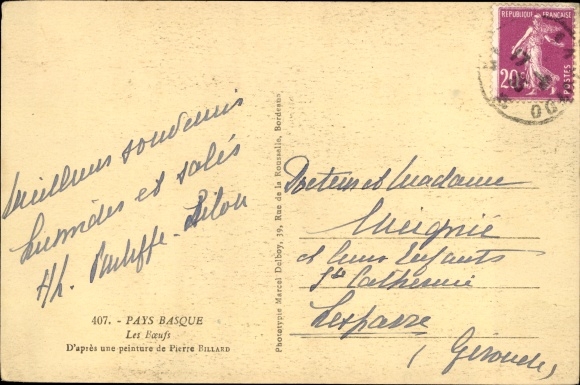 REPUBLIQUE FRANÇAISE
20c
POSTES
Meilleurs souvenirs
humides et salés
407. - PAYS BASQUE
Les Bœufs
D'après une peinture de Pierre BILLARD
Phototypie Marcel Delboy, 39, Rue de la Rousselle, Bordeaux
Docteur et Madame
Meignié
et leurs Enfants
Ste Catherine
Lesparre
(Gironde)